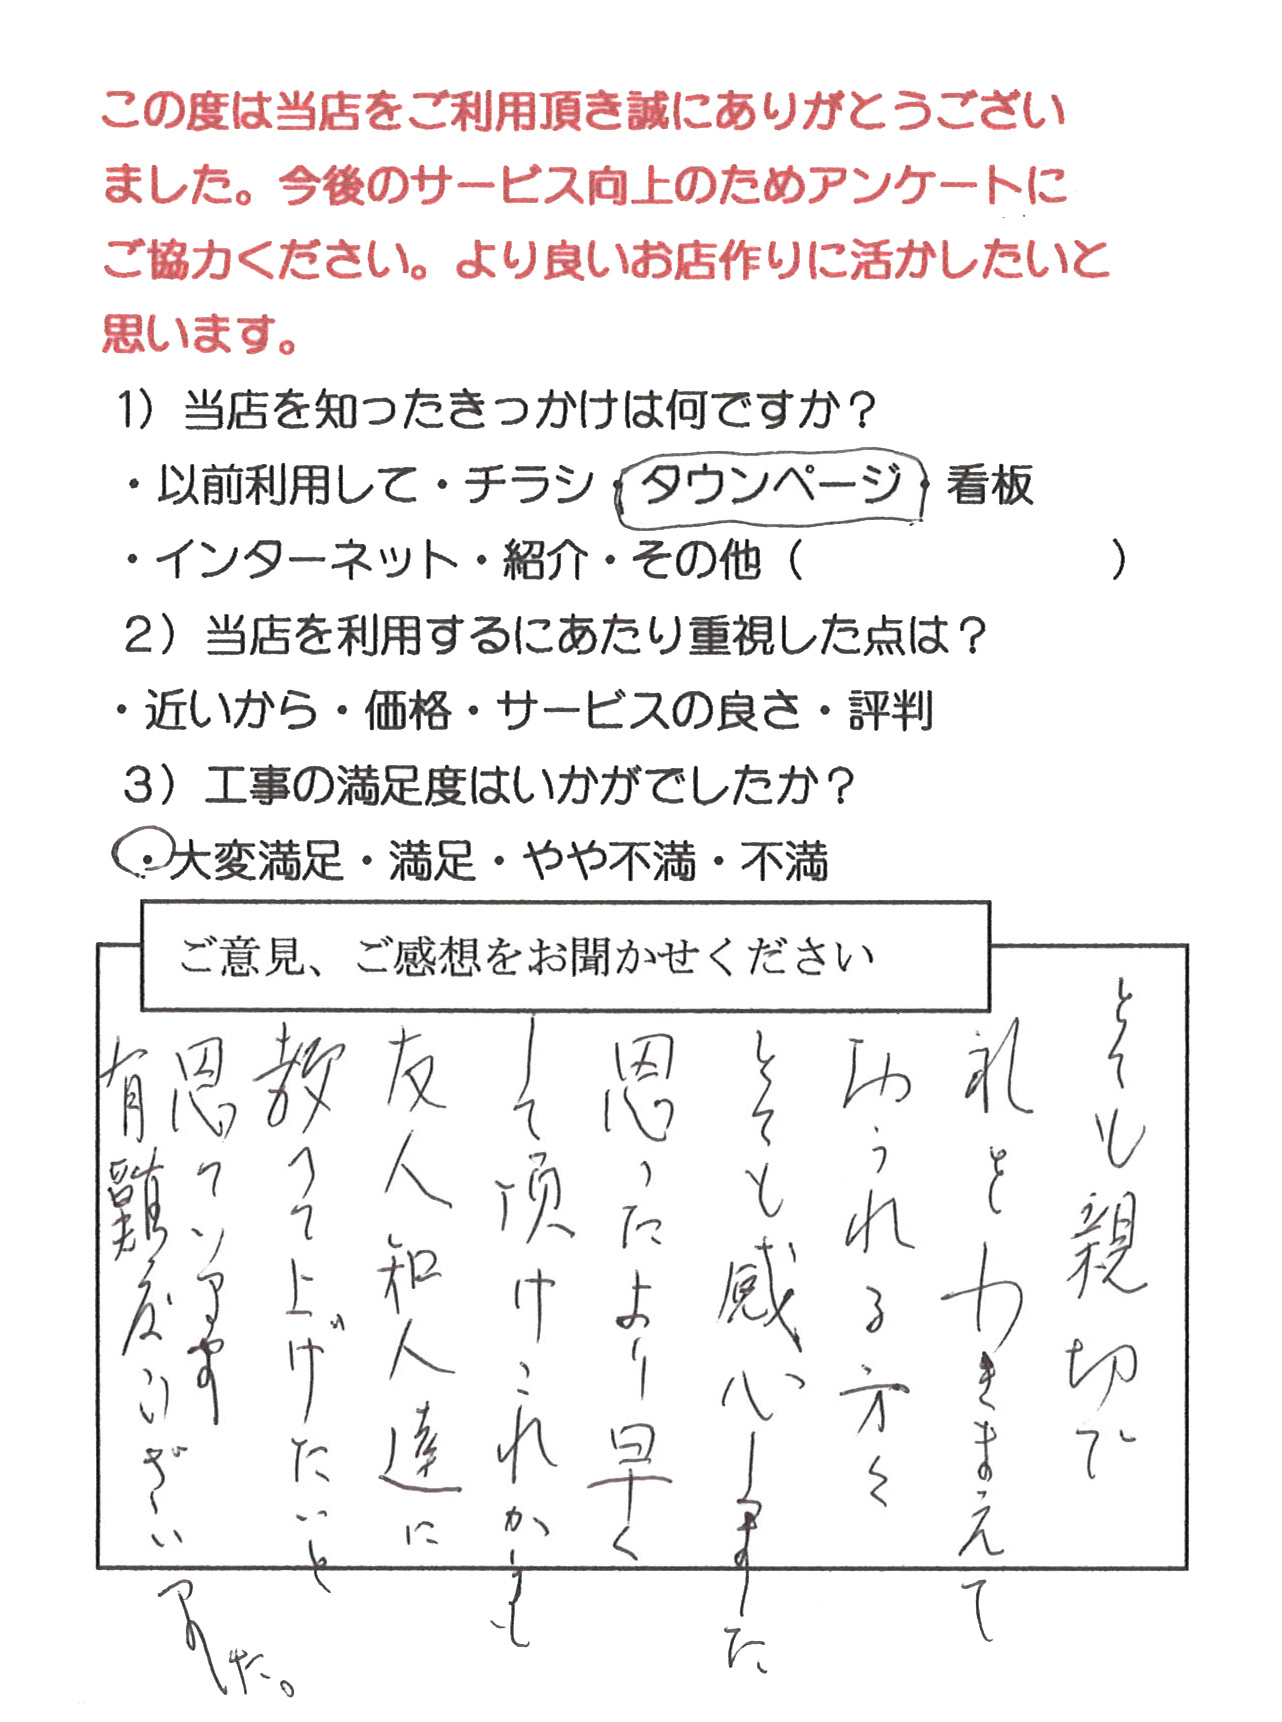 この度は当店をご利用頂き誠にありがとうござい
ました。今後のサービス向上のためアンケートに
ご協力ください。より良いお店作りに活かしたいと
思います。
1）当店を知ったきっかけは何ですか？
・以前利用して・チラシ・タウンページ・看板
・インターネット・紹介・その他（　　　　　　　）
2）当店を利用するにあたり重視した点は？
・近いから・価格・サービスの良さ・評判
3）工事の満足度はいかがでしたか？
・大変満足・満足・やや不満・不満
ご意見、ご感想をお聞かせください
とても親切で
礼をわきまえて
おられる方々
とても感心しました
思ったより早く
して頂けこれからも
友人知人達に
教えて上げたいと
思っています
有難度うございました。